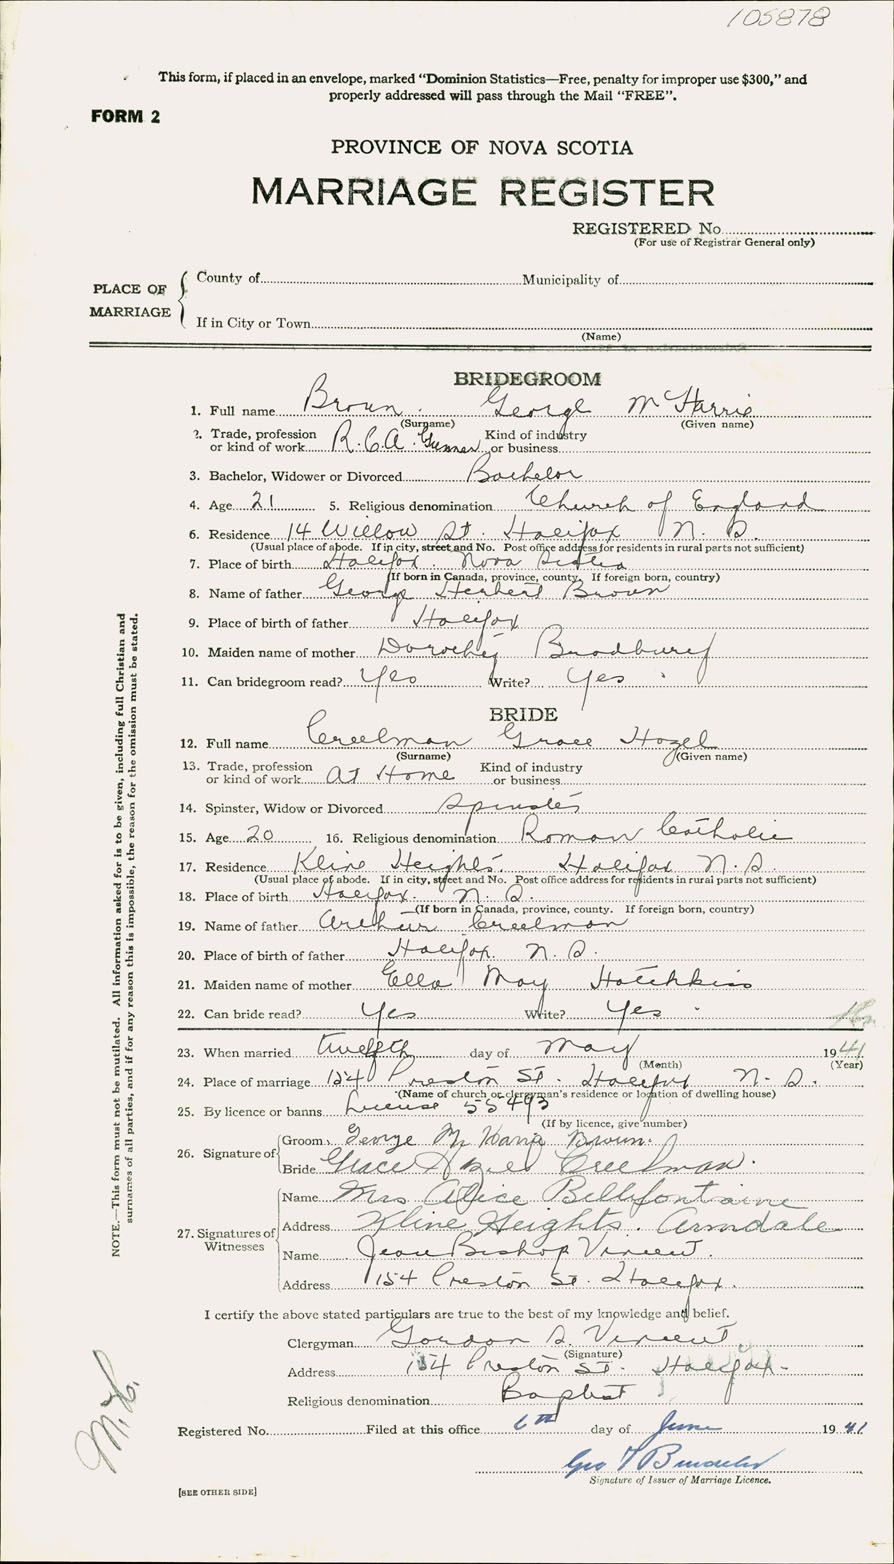 105878
This form, if placed in an envelope, marked "Dominion Statistics—Free, penalty for improper use $300," and
properly addressed will pass through the Mail "FREE".
FORM 2
PROVINCE OF NOVA SCOTIA
MARRIAGE REGISTER
REGISTERED No.
(For use of Registrar General only)
PLACE OF MARRIAGE
County of Municipality of
If in City or Town
(Name)
BRIDEGROOM
1. Full name Brown George McHarrie
(Surname) (Given name)
2. Trade, profession or kind of work R.C.A. Gunner Kind of industry or business
3. Bachelor, Widower or Divorced Bachelor
4. Age 21 5. Religious denomination Church of England
6. Residence 14 Willow St. Halifax N.S.
(Usual place of abode. If in city, street and No. Post office address for residents in rural parts not sufficient)
7. Place of birth Halifax Nova Scotia
(If born in Canada, province, county. If foreign born, country)
8. Name of father George Herbert Brown
9. Place of birth of father Halifax
10. Maiden name of mother Dorothy Bradbury
11. Can bridegroom read? Yes Write? Yes
BRIDE
12. Full name Creelman Grace Hazel
(Surname) (Given name)
13. Trade, profession or kind of work At Home Kind of industry or business
14. Spinster, Widow or Divorced Spinster
15. Age 20 16. Religious denomination Roman Catholic
17. Residence Kline Heights. Halifax N.S.
(Usual place of abode. If in city, street and No. Post office address for residents in rural parts not sufficient)
18. Place of birth Halifax. N.S.
(If born in Canada, province, county. If foreign born, country)
19. Name of father Arthur Creelman
20. Place of birth of father Halifax. N.S.
21. Maiden name of mother Ella May Hotchkiss
22. Can bride read? Yes Write? Yes
23. When married twelfth day of May 1941
(Month) (Year)
24. Place of marriage 154 Preston St. Halifax N.S.
(Name of church or clergyman's residence or location of dwelling house)
25. By licence or banns License 55493
(If by licence, give number)
26. Signature of
Groom George Mc Harrie Brown.
Bride Grace Hazel Creelman.
27. Signatures of Witnesses
Name Mrs Alice Bellefontaine
Address Kline Heights. Armdale
Name Jean Bishop Vincent.
Address 154 Preston St. Halifax.
I certify the above stated particulars are true to the best of my knowledge and belief.
Clergyman Gordon D. Vincent
(Signature)
Address 154 Preston St. Halifax
Religious denomination Baptist
Registered No. Filed at this office 6th day of June 1941
Geo
Signature of Issuer of Marriage Licence.
[SEE OTHER SIDE]
NOTE.—This form must not be mutilated. All information asked for is to be given, including full Christian and
surnames of all parties, and if for any reason this is impossible, the reason for the omission must be stated.
M.H.